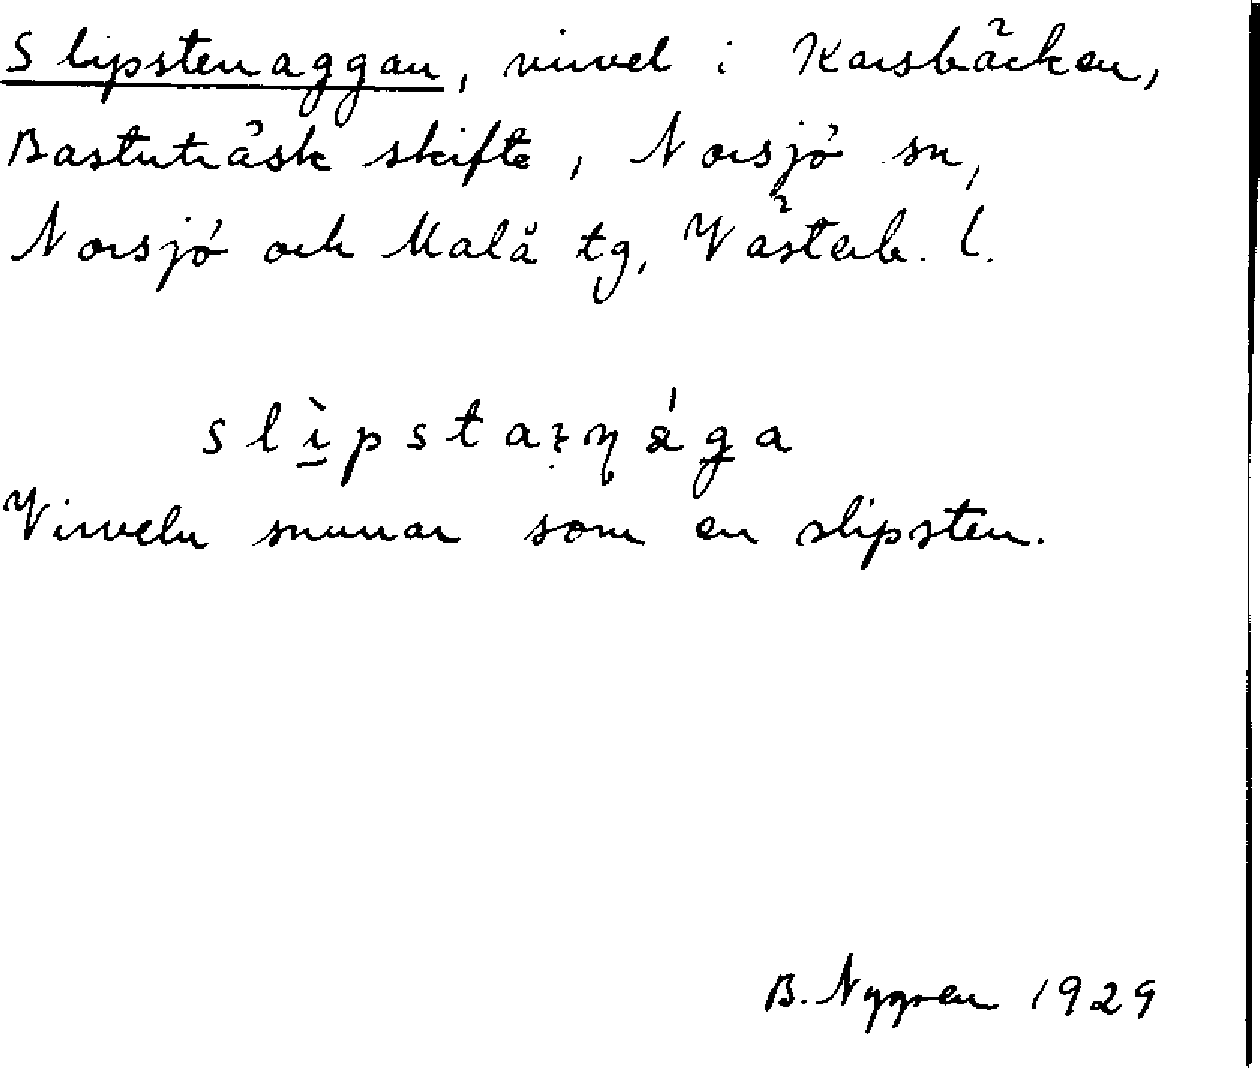 Slipstenaggan, virvel i Korsbäcken,
Bastuträsk skifte, Norsjö sn,
Norsjö och Malå tg, Västerb. l.
Virveln snurrar som en slipsten.
B. Nygren 1929